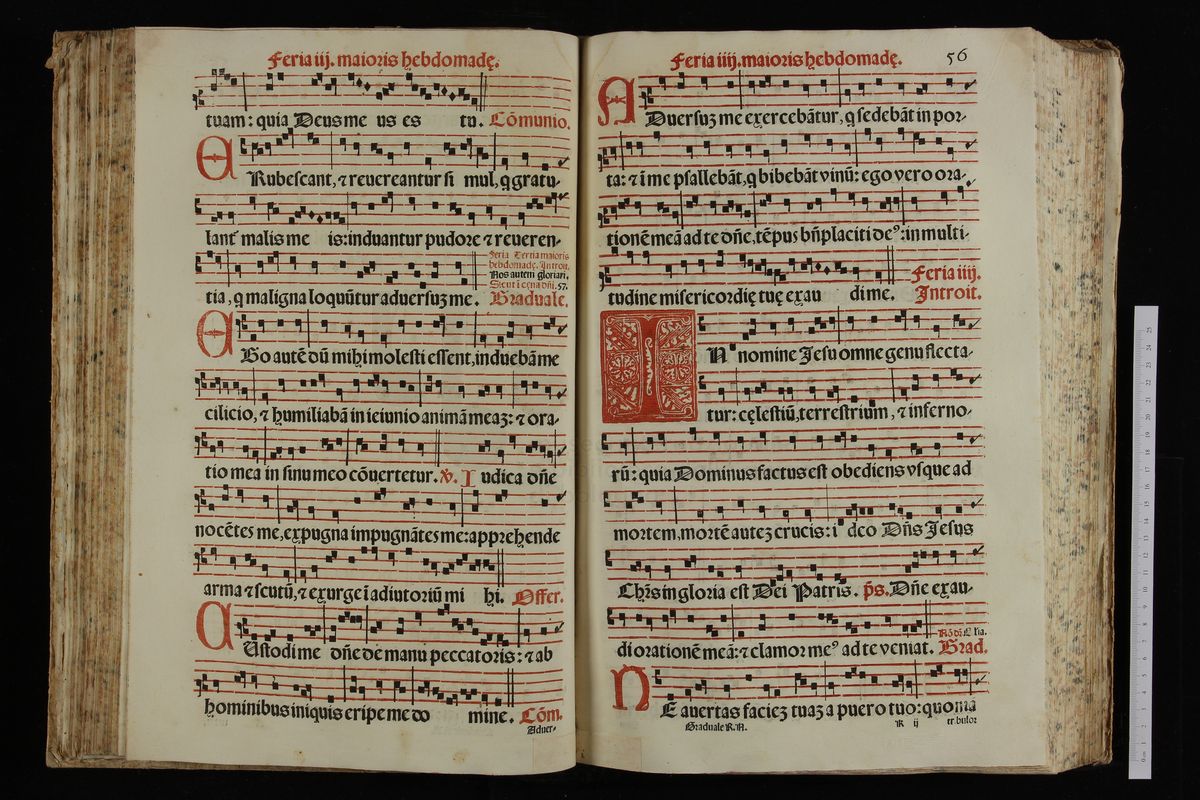 Feria iij. maioris hebdomadę.
tuam: quia Deus me us es tu. Cōmunio.
ERubescant, ⁊ reuereantur si mul, q̄ gratu-
lant᷑ malis me is: induantur pudore ⁊ reueren-
Feria Tertia maioris
hebdomadę. Introit.
Nos autem gloriari.
Sicut ī cęna dñi. 57.
tia, q̄ maligna loquūtur aduersuꝫ me. Graduale.
EGo autē dū mihi molesti essent, induebā me
cilicio, ⁊ humiliabā in ieiunio animā meaꝫ: ⁊ ora-
tio mea in sinu meo cōuertetur. ℣. Iudica dñe
nocētes me, expugna impugnātes me: apprehende
arma ⁊ scutū, ⁊ exurge ī adiutoriū mi hi. Offer.
CUstodi me dñe de manu peccatoris: ⁊ ab
hominibus iniquis eripe me do mine. Cōm.
Aduer-
Feria iiij. maioris hebdomadę. 56
ADuersuꝫ me exercebātur, q̄ sedebāt in por-
ta: ⁊ ī me psallebāt, q̄ bibebāt vinū: ego vero ora-
tionē meā ad te dñe, tēpus bñplaciti deꝰ: in multi-
tudine misericordię tuę exau di me. Feria iiij.
Introit.
IN nomine Jesu omne genu flecta-
tur: cęlestiū, terrestrium, ⁊ inferno-
rū: quia Dominus factus est obediens vsque ad
mortem, mortē auteꝫ crucis: i deo Dñs Jesus
Chr̄s in gloria est Dei Patris. p̄s. Dñe exau-
di orationē meā: ⁊ clamor meꝰ ad te veniat. Grad.
NE auertas facieꝫ tuaꝫ a puero tuo: quoniā
Graduale R. A. K ij tribulor